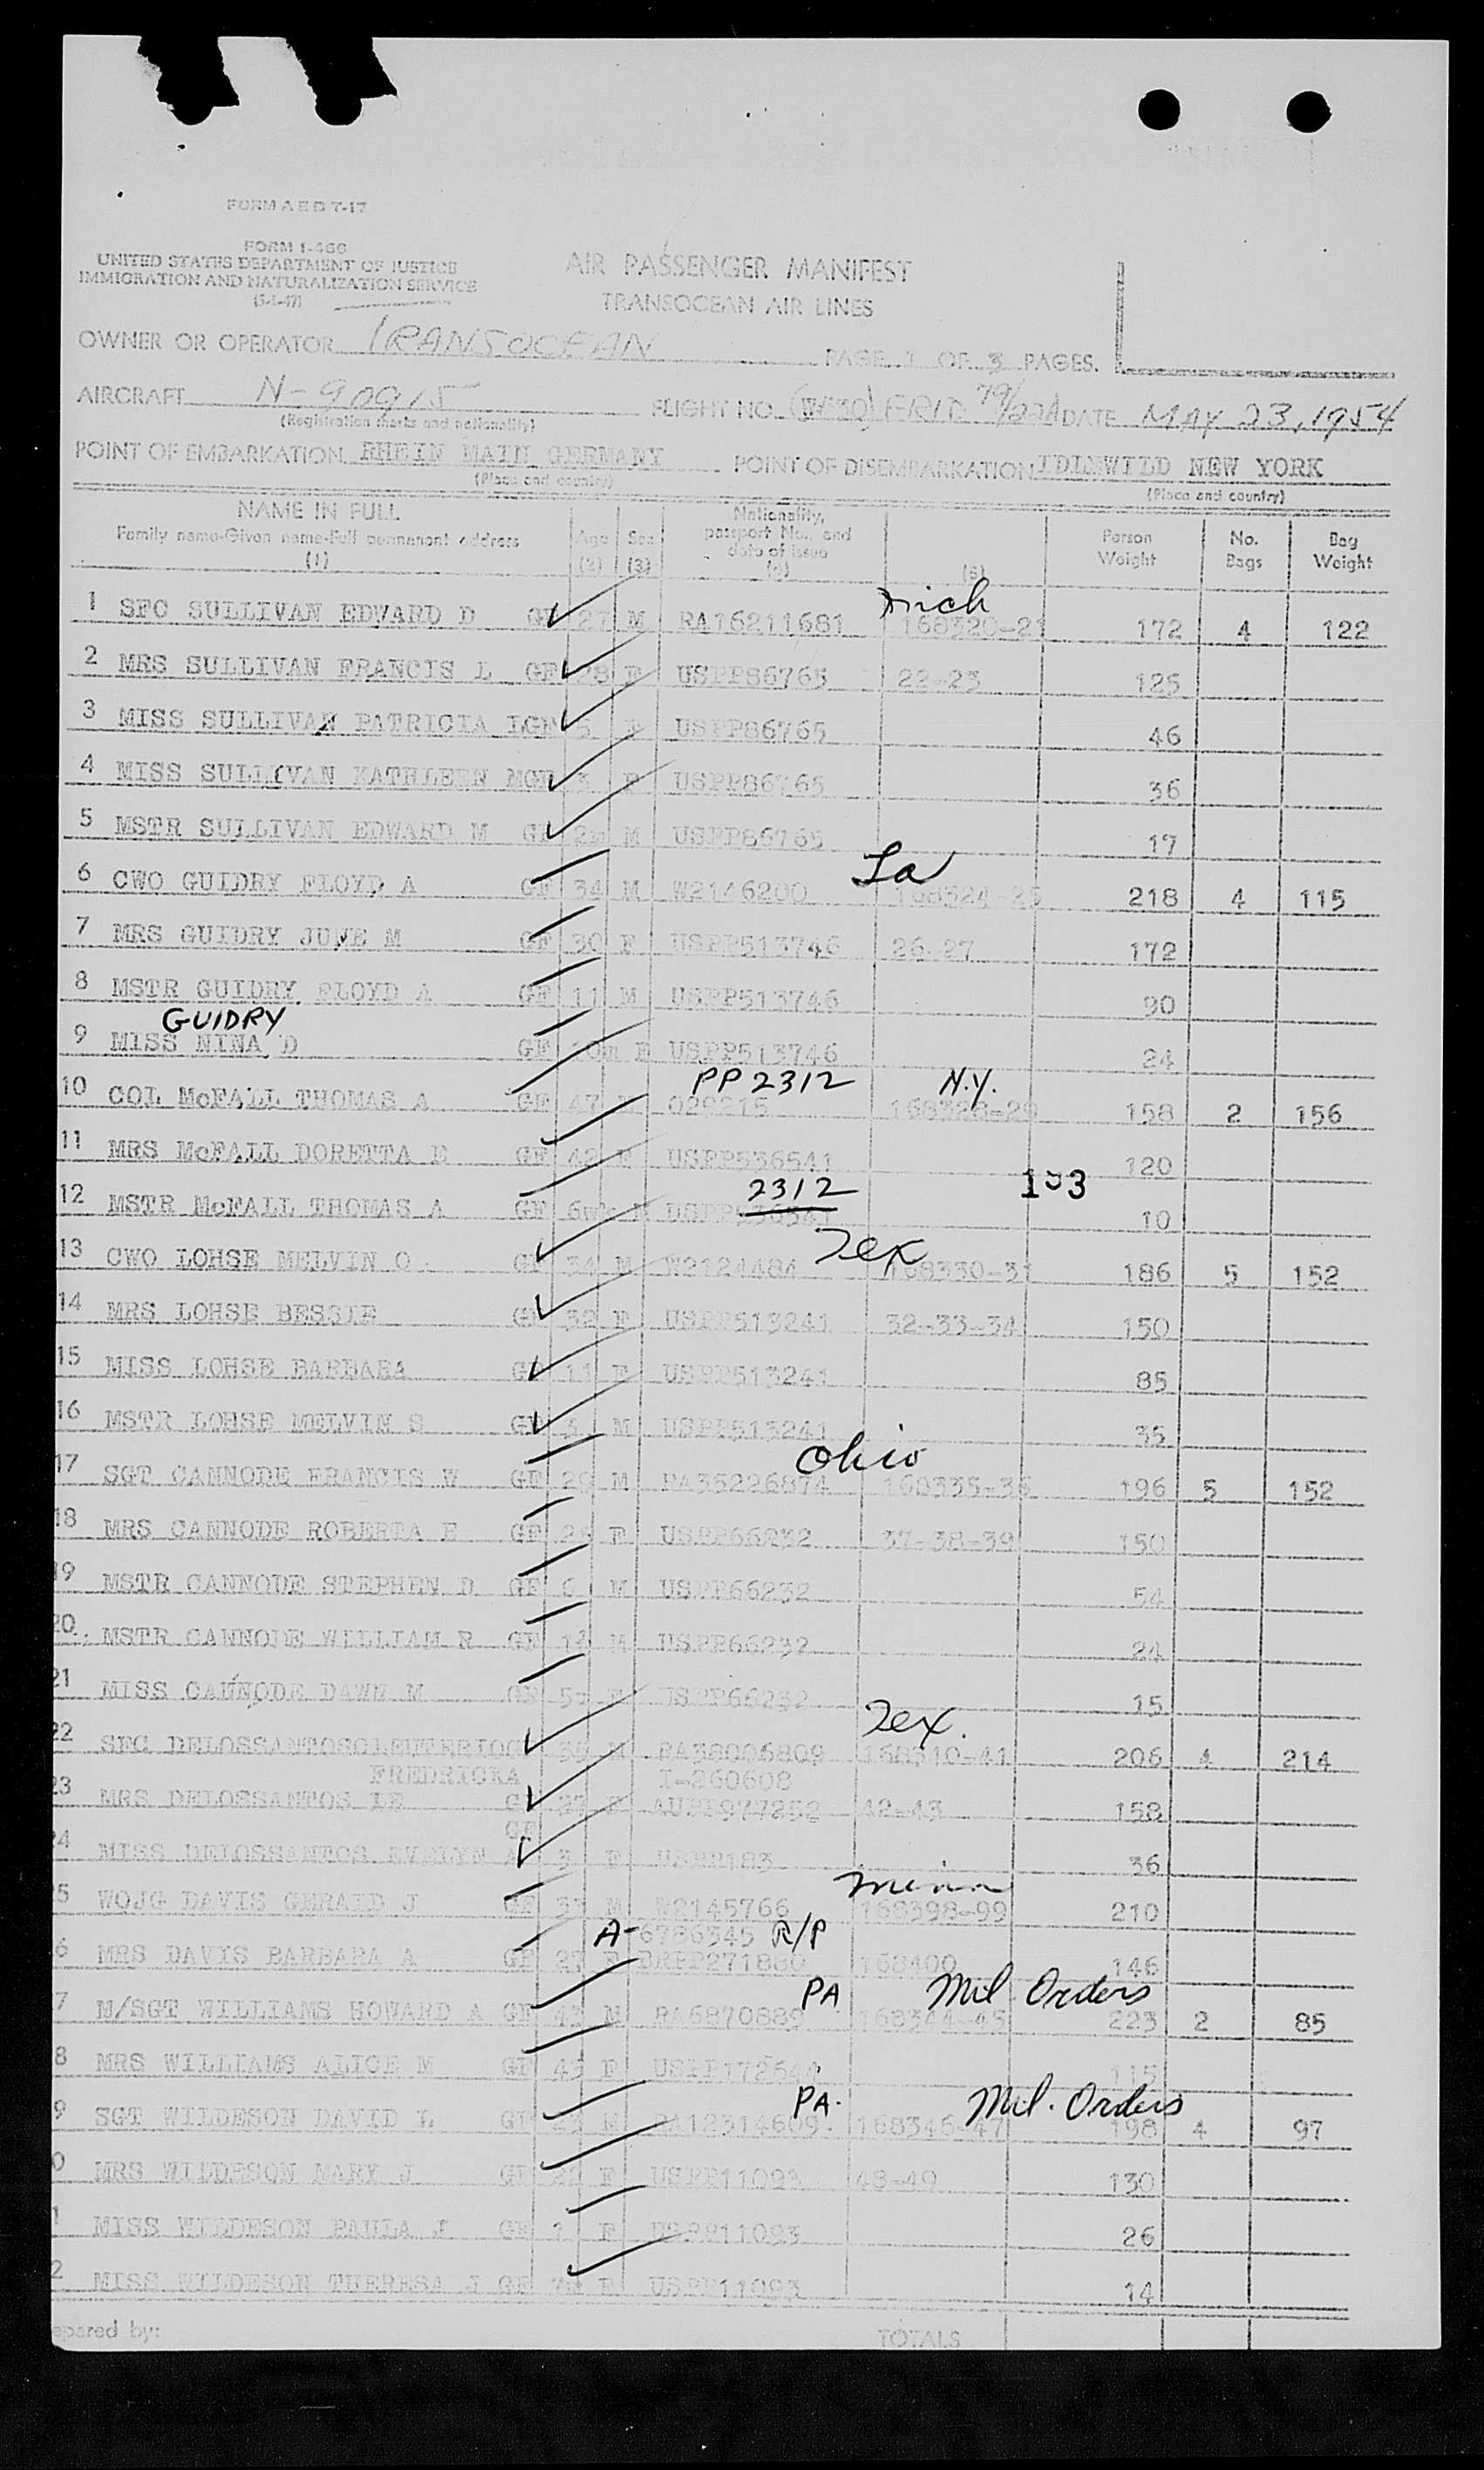 FORM A E D 7-17
FORM I-466
UNITED STATES DEPARTMENT OF JUSTICE
IMMIGRATION AND NATURALIZATION SERVICE
AIR PASSENGER MANIFEST
TRANSOCEAN AIR LINES
OWNER OR OPERATOR TRANSOCEAN PAGE 1 OF 3 PAGES.
AIRCRAFT N-90915 FLIGHT NO. DATE MAY 23, 1954
(Registration marks and nationality)
POINT OF EMBARKATION RHEIN MAIN GERMANY POINT OF DISEMBARKATION IDLEWILD NEW YORK
(Place and country) (Place and country)
NAME IN FULL Nationality,
Family name-Given name-Full permanent address Age Sex passport No., and Person No. Bag
date of issue Weight Bags Weight
(1) (2) (3) (4) (5)
Mich
1 SFC SULLIVAN EDWARD D GF 27 M RA16211681 168320-21 172 4 122
2 MRS SULLIVAN FRANCIS L GF 28 F USPP86765 22-23 125
3 MISS SULLIVAN PATRICIA L GF 5 F USPP86765 46
4 MISS SULLIVAN KATHLEEN M GF 3 F USPP86765 36
5 MSTR SULLIVAN EDWARD M GF M USPP86765 17
La
6 CWO GUIDRY FLOYD A GF 34 M W2146200 168324-25 218 4 115
7 MRS GUIDRY JUNE M GF 30 F USPP513746 26-27 172
8 MSTR GUIDRY FLOYD A GF 11 M USPP513746 90
GUIDRY
9 MISS NINA D GF 10m F USPP513746 24
PP 2312 N.Y.
10 COL McFALL THOMAS A GF 47 029215 168328-29 158 2 156
11 MRS McFALL DORETTA E GF 42 F USPP536541 120
2312 103
12 MSTR McFALL THOMAS A GF USPP536541 10
Tex
13 CWO LOHSE MELVIN O GF 34 M W2124484 168330-31 186 5 152
14 MRS LOHSE BESSIE GF 32 F USPP513241 32-33-34 150
15 MISS LOHSE BARBARA GF 11 F USPP513241 85
16 MSTR LOHSE MELVIN S GF M USPP513241 35
Ohio
17 SGT CANNODE FRANCIS W GF 29 M RA35226874 168335-36 196 5 152
18 MRS CANNODE ROBERTA E GF F USPP66232 37-38-39 150
19 MSTR CANNODE STEPHEN D GF 6 M USPP66232 54
20 MSTR CANNODE WILLIAM R GF M USPP66232 24
21 MISS CANNODE DAWN M GF F USPP66232 15
Tex.
22 SFC DELOSSANTOS ELEUTERIO M RA38006809 168340-41 206 4 214
FREDRICKA I-260608
23 MRS DELOSSANTOS GF F 977252 42-43 158
GF
24 MISS DELOSSANTOS EVELYN A 3 F USPP183 36
Minn
5 WOJG DAVIS GERALD J GF 33 M W2145766 168398-99 210
A-6786545 R/P
6 MRS DAVIS BARBARA A GF 27 F BRPP271880 168400 146
PA Mil Orders
7 M/SGT WILLIAMS HOWARD A GF M RA6870889 168344-45 223 2 85
8 MRS WILLIAMS ALICE M GF 43 F USPP172644 115
PA. Mil. Orders
9 SGT WILDESON DAVID L GF M RA12314609 168346-47 198 4 97
0 MRS WILDESON MARY J GF F USPP11093 48-49 130
1 MISS WILDESON PAULA J GF F USPP11093 26
2 MISS WILDESON THERESA J GF F USPP11093 14
epared by: TOTALS